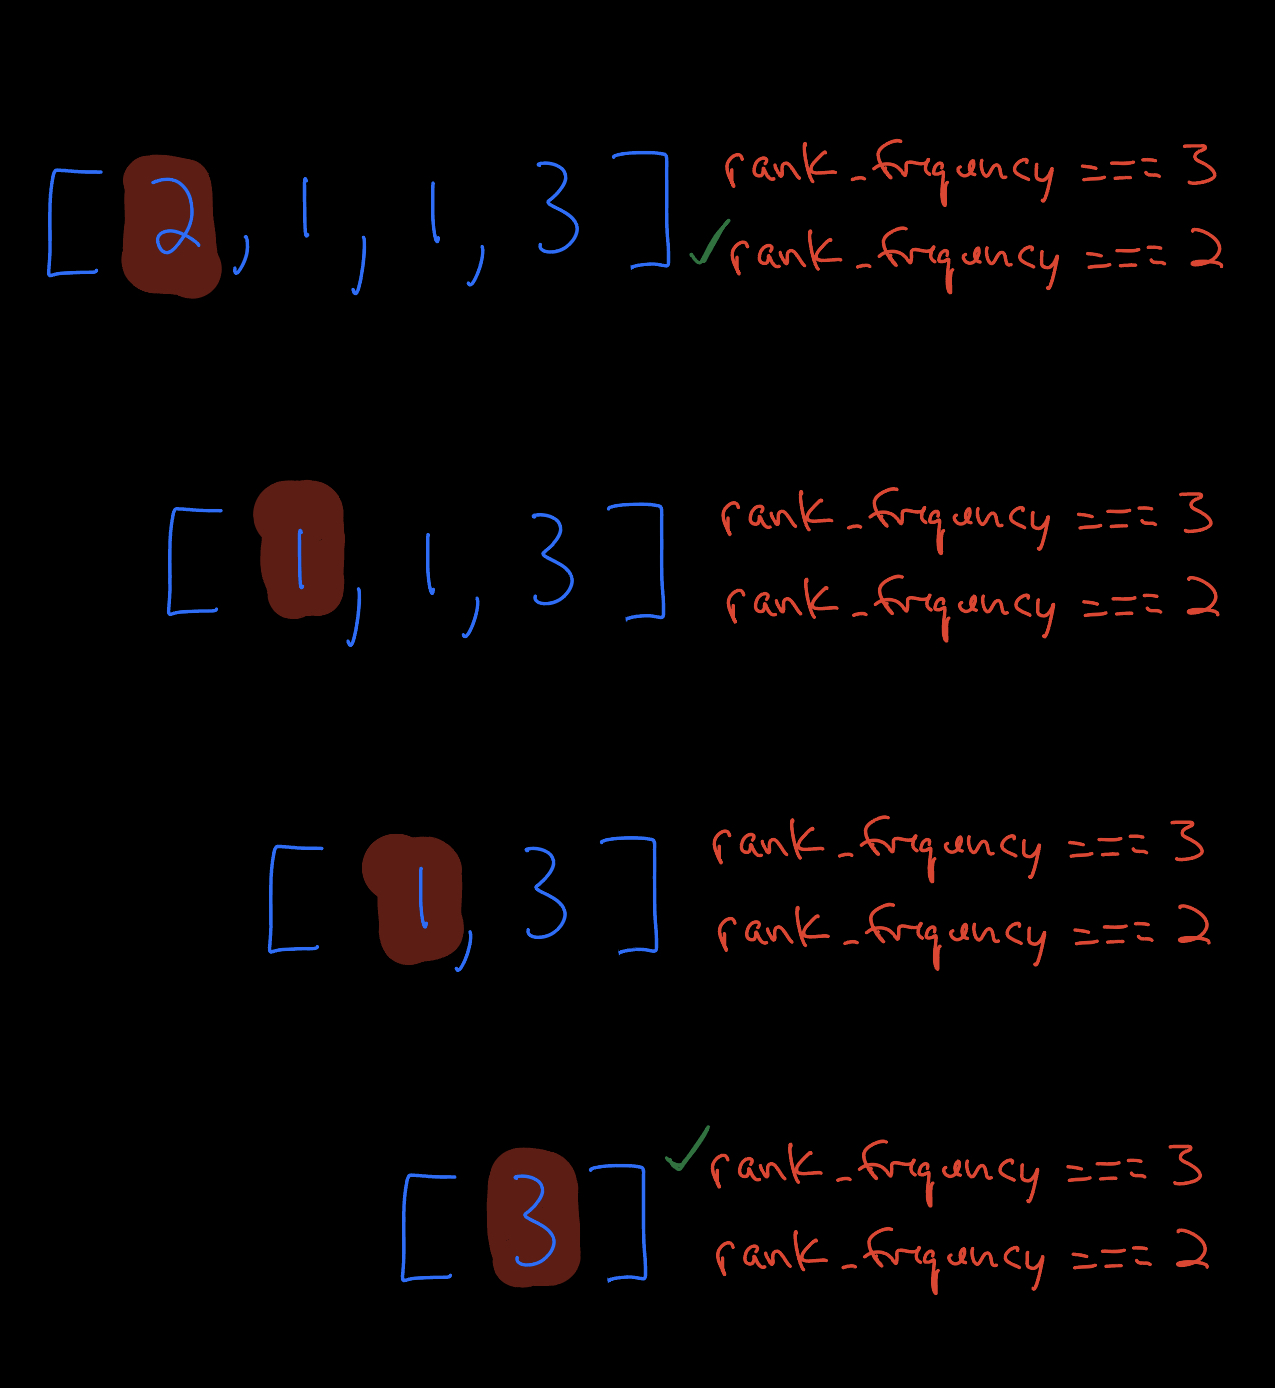 [ 2, 1, 1, 3 ] rank_frequency === 3
✓ rank_frequency === 2
[ 1, 1, 3 ] rank_frequency === 3
rank_frequency === 2
[ 1, 3 ] rank_frequency === 3
rank_frequency === 2
[ 3 ] ✓ rank_frequency === 3
rank_frequency === 2